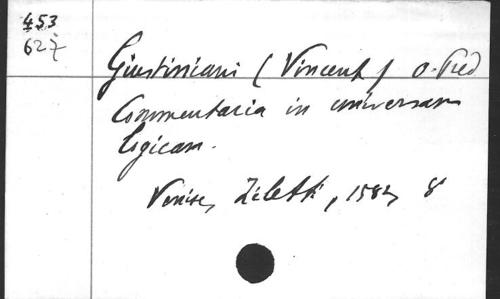 453
627
Giustiniani (Vincent) o. Pred
Commentaria in universam
logicam.
Venise, Ziletti, 1582, 8